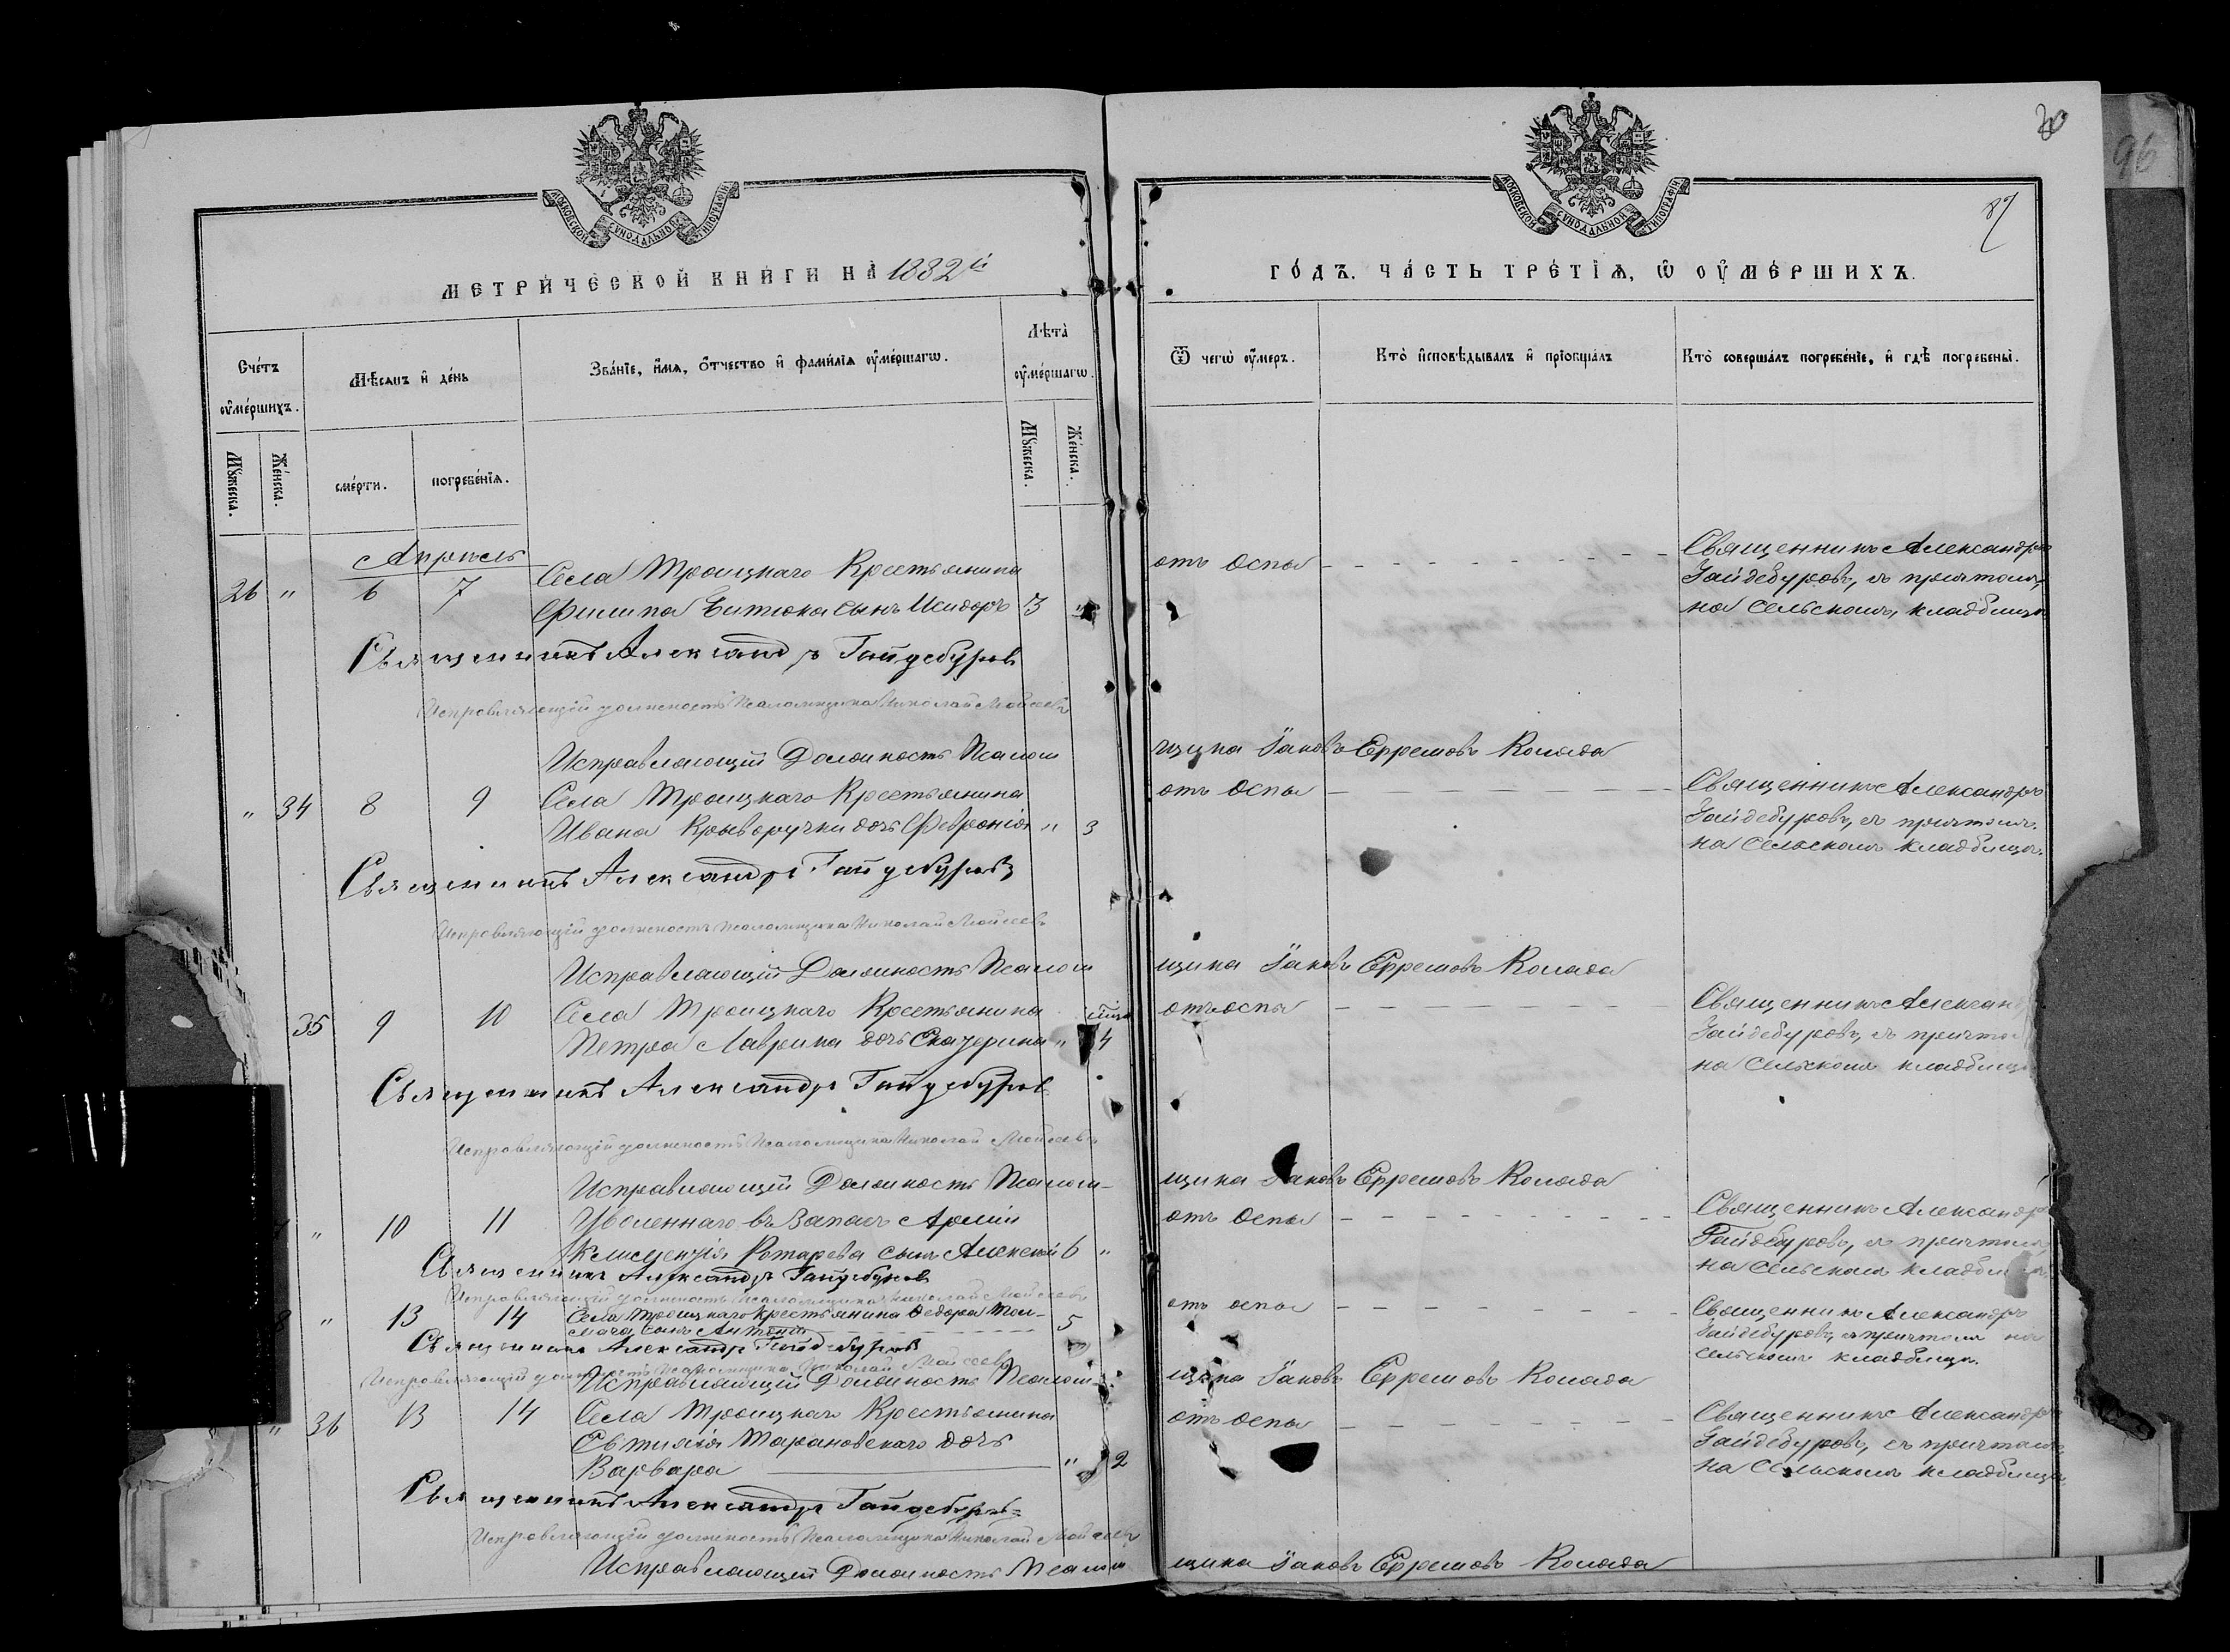 МОСКОВСКОЙ СѴНОДАЛЬНОЙ ТИПОГРАФІИ
МЕТРИЧЕСКОЙ КНИГИ НА 1882 й
Счетъ оумершихъ.
Мѣсяцъ и день
Званіе, имя, отчество и фамилія оумершагѡ.
Лѣта оумершагѡ.
Мꙋжеска.
Женска.
смерти.
погребенія.
Мꙋжеска.
Женска.
Апрель
26 " 6 7 Села Троицкаго Крестьянина
Филипа Битюка сынъ Исидоръ 3 "
Священникъ Александръ Гайдебуровъ
Исправляющій должность Псаломщика Николай Мойсеевъ
Исправляющій Должность Псалом
" 34 8 9 Села Троицкаго Крестьянина
Ивана Криворучки дочь Февронія " 3
Священникъ Александръ Гайдебуровъ
Исправляющій должность псаломщика Николай Мойсеевъ
Исправляющій Должность Псалом
35 9 10 Села Троицкаго Крестьянина
Петра Лаврика дочь Екатерина " 4
Священникъ Александръ Гайдебуровъ
Исправляющій должность Псаломщика Николай Мойсеевъ
Исправляющій Должность Псалом-
" 10 11 Уволеннаго въ Запасъ Арміи
Ротарева сынъ Алексей 6 "
Священникъ Александръ Гайдебуровъ
Исправляющій должность Псаломщика Николай Мойсеевъ
" 13 14 Села Троицкаго крестьянина Федора Тол-
мача сынъ Антоній 5
Священникъ Александръ Гайдебуровъ
Исправляющій должность Псаломщика Николай Мойсеевъ
Исправляющій Должность Псалом-
" 36 13 14 Села Троицкаго Крестьянина
Евтихія Тарановскаго дочь
Варвара " 2
Священникъ Александръ Гайдебуровъ
Исправляющій должность Псаломщика Николай Мойсеевъ
Исправляющій Должность Псалом
96
МОСКОВСКОЙ СѴНОДАЛЬНОЙ ТИПОГРАФІИ
ГОДЪ. ЧАСТЬ ТРЕТІѦ, Ѡ ОУМЕРШИХЪ.
Ѿ чегѡ оумеръ.
Кто исповѣдывалъ и пріобщалъ
Кто совершалъ погребеніе, и гдѣ погребены.
отъ Оспы Священникъ Александръ
Гайдебуровъ, съ причтомъ,
на Сельскомъ, кладбищѣ
щика Іаковъ Ефремовъ Коляда
отъ Оспы Священникъ Александръ
Гайдебуровъ, съ причтомъ.
на Сельскомъ кладбищѣ.
щика Іаковъ Ефремовъ Коляда
отъ оспы Священникъ Александ
Гайдебуровъ, съ причто
на Сельскомъ кладбищ
щика Іаковъ Ефремовъ Коляда
отъ Оспы Священникъ Александръ
Гайдебуровъ, съ причтомъ,
на Сельскомъ кладбищѣ
отъ оспы Священникъ Александръ
Гайдебуровъ, съ причтомъ на
сельскомъ кладбищѣ.
щика Іаковъ Ефремовъ Коляда
отъ Оспы Священникъ Александръ
Гайдебуровъ, съ причтомъ
на Сельскомъ кладбищѣ
щика Іаковъ Ефремовъ Коляда